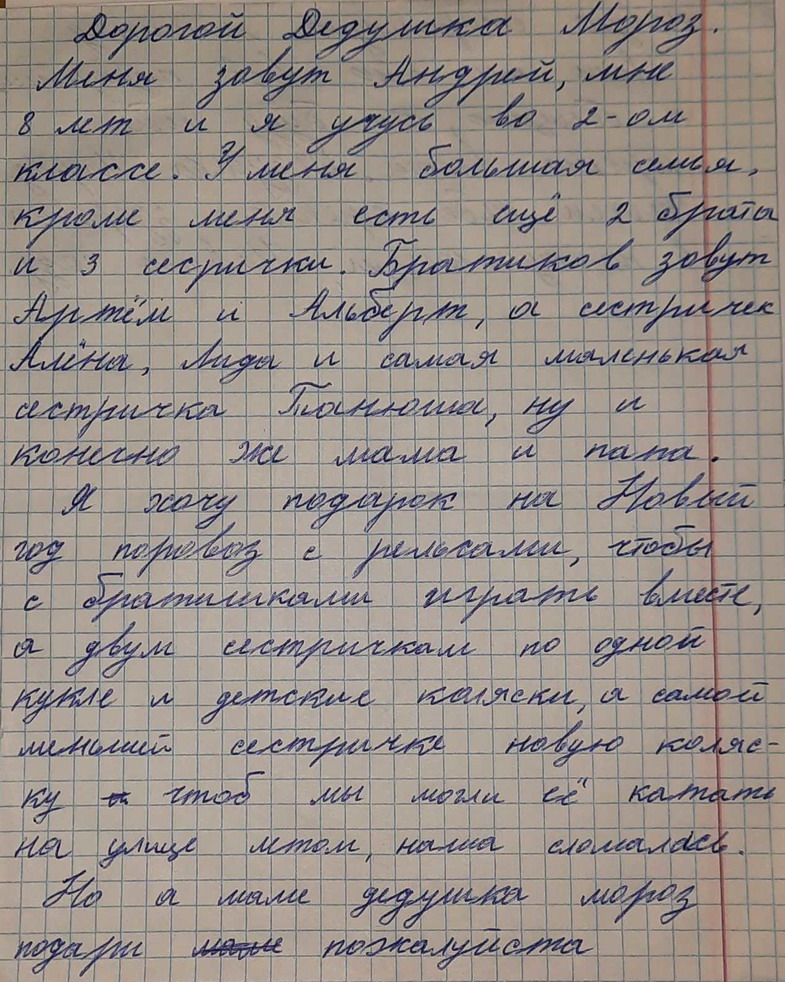 Дорогой Дедушка Мороз.
Меня зовут Андрей, мне
8 лет и я учусь во 2-ом
классе. У меня большая семья,
кроме меня есть ещё 2 брата
и 3 сесрички. Братиков зовут
Артём и Альберт, а сестричек
Алёна, Лида и самая маленькая
сестричка Танюша, ну и
конечно же мама и папа.
Я хочу подарок на Новый
год поровоз с рельсами, чтобы
с братишками играть вместе,
а двум сестричкам по одной
кукле и детские каляски, а самой
меньшей сестричке новую коляс-
ку чтоб мы могли её катать
на улице летом, наша сломалась.
Но а маме дедушка мороз
подари пожалуйста